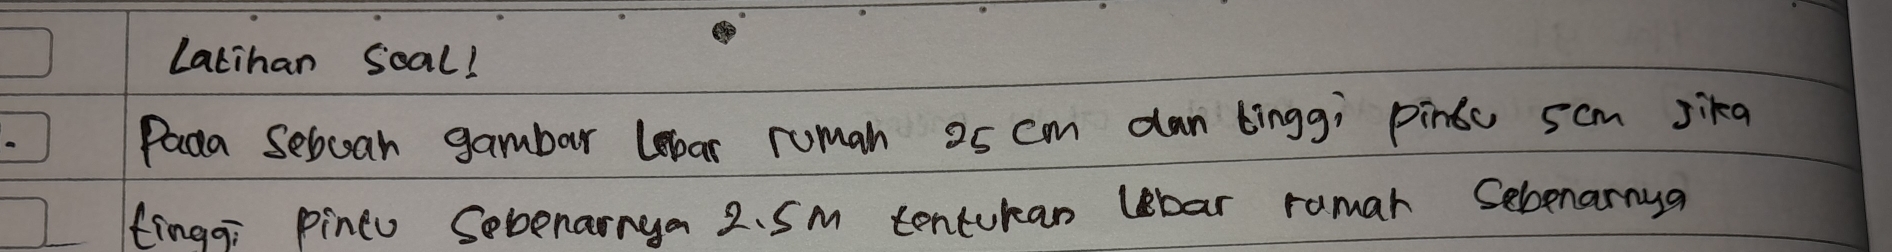 Latihan Soal!
Pada sebuah gambar lebar rumah 25 cm dan tinggi pintu 5 cm jika
tinggi pintu sebenarnya 2.5 M tentukan lebar rumah sebenarnya